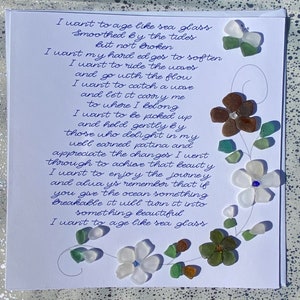 I want to age like sea glass
Smoothed by the tides
but not broken
I want my hard edges to soften
I want to ride the waves
and go with the flow
I want to catch a wave
and let it carry me
to where I belong
I want to be picked up
and held gently by
those who delight in my
well earned patina and
appreciate the changes I went
through to achieve that beauty
I want to enjoy the journey
and always remember that if
you give the ocean something
breakable it will turn it into
something beautiful
I want to age like sea glass